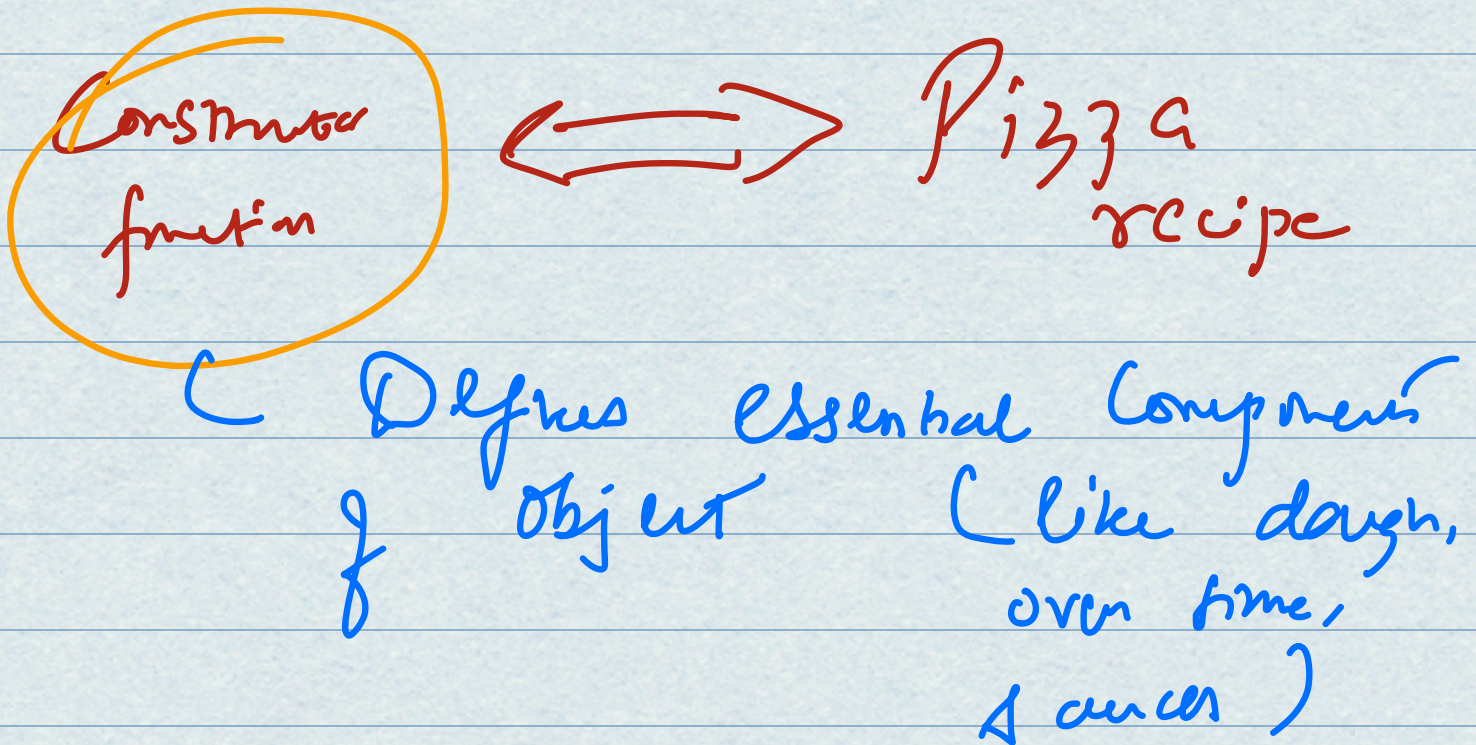 Constructor ⇔ Pizza
function recipe
Defines essential Components
of object (like dough,
oven time,
sauces)